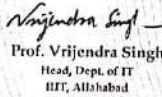 Vrijendra Singh
Prof. Vrijendra Singh
Head, Dept. of IT
IIIT, Allahabad